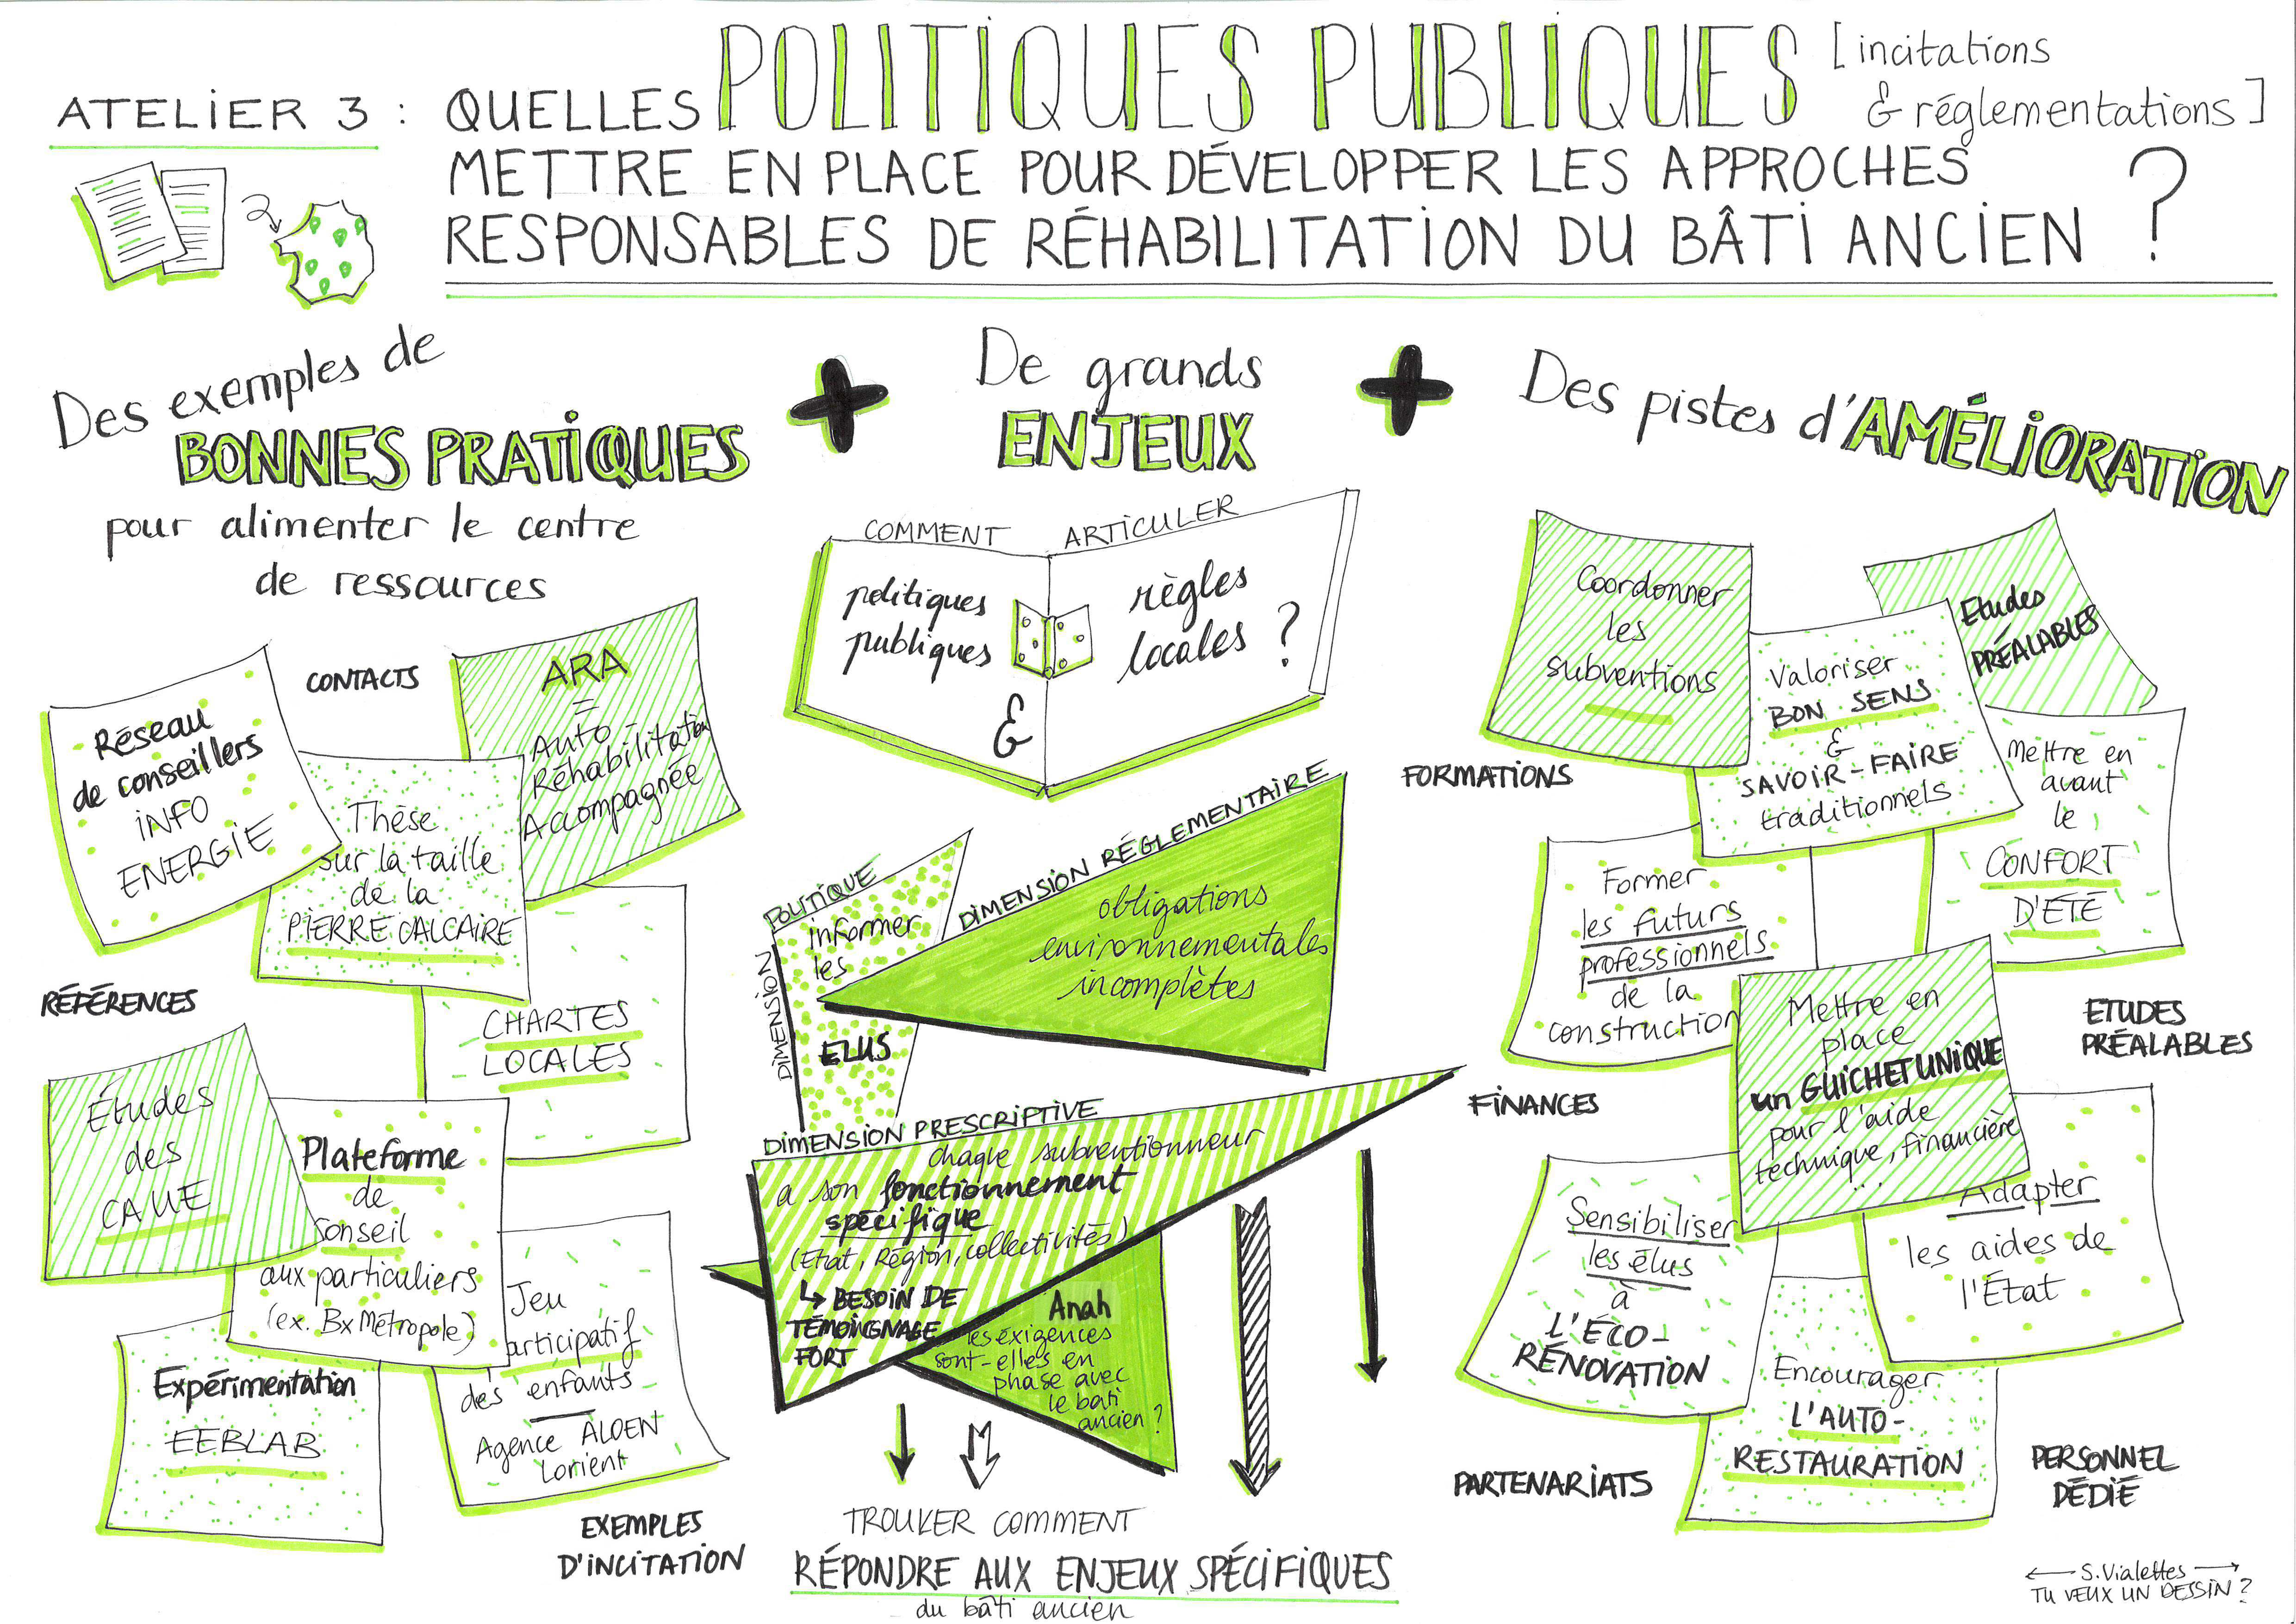 ATELIER 3 : QUELLES POLITIQUES PUBLIQUES [incitations
& réglementations]
METTRE EN PLACE POUR DÉVELOPPER LES APPROCHES
RESPONSABLES DE RÉHABILITATION DU BÂTI ANCIEN ?
Des exemples de
BONNES PRATIQUES
pour alimenter le centre
de ressources
CONTACTS
Réseau
de conseillers
INFO
ENERGIE
ARA
=
Auto-
Réhabilitation
Accompagnée
Thèse
sur la taille
de la
PIERRE CALCAIRE
RÉFÉRENCES
CHARTES
LOCALES
Études
des
CAUE
Plateforme
de
Conseil
aux particuliers
(ex. Bx Métropole)
Jeu
participatif
des enfants
Agence ALOEN
Lorient
Expérimentation
EEBLAB
EXEMPLES
D'INCITATION
+
De grands
ENJEUX
COMMENT ARTICULER
politiques
publiques
&
règles
locales ?
DIMENSION POLITIQUE
informer
les
ELUS
DIMENSION RÉGLEMENTAIRE
obligations
environnementales
incomplètes
DIMENSION PRESCRIPTIVE
chaque subventionneur
a son fonctionnement
spécifique
(Etat, Région, collectivités)
↳ BESOIN DE
TÉMOIGNAGE
FORT
Anah
les exigences
sont-elles en
phase avec
le bâti
ancien ?
TROUVER COMMENT
RÉPONDRE AUX ENJEUX SPÉCIFIQUES
du bâti ancien
+
Des pistes d'AMÉLIORATION
Coordonner
les
subventions
Etudes
PRÉALABLES
Valoriser
BON SENS
&
SAVOIR-FAIRE
traditionnels
Mettre en
avant
le
CONFORT
D'ÉTÉ
FORMATIONS
Former
les futurs
professionnels
de la
construction
Mettre en
place
un GUICHET UNIQUE
pour l'aide
technique, financière
...
ETUDES
PRÉALABLES
FINANCES
Sensibiliser
les élus
à
L'ÉCO-
RÉNOVATION
Adapter
les aides de
l'État
Encourager
L'AUTO-
RESTAURATION
PARTENARIATS
PERSONNEL
DÉDIÉ
← S.Vialettes →
TU VEUX UN DESSIN ?